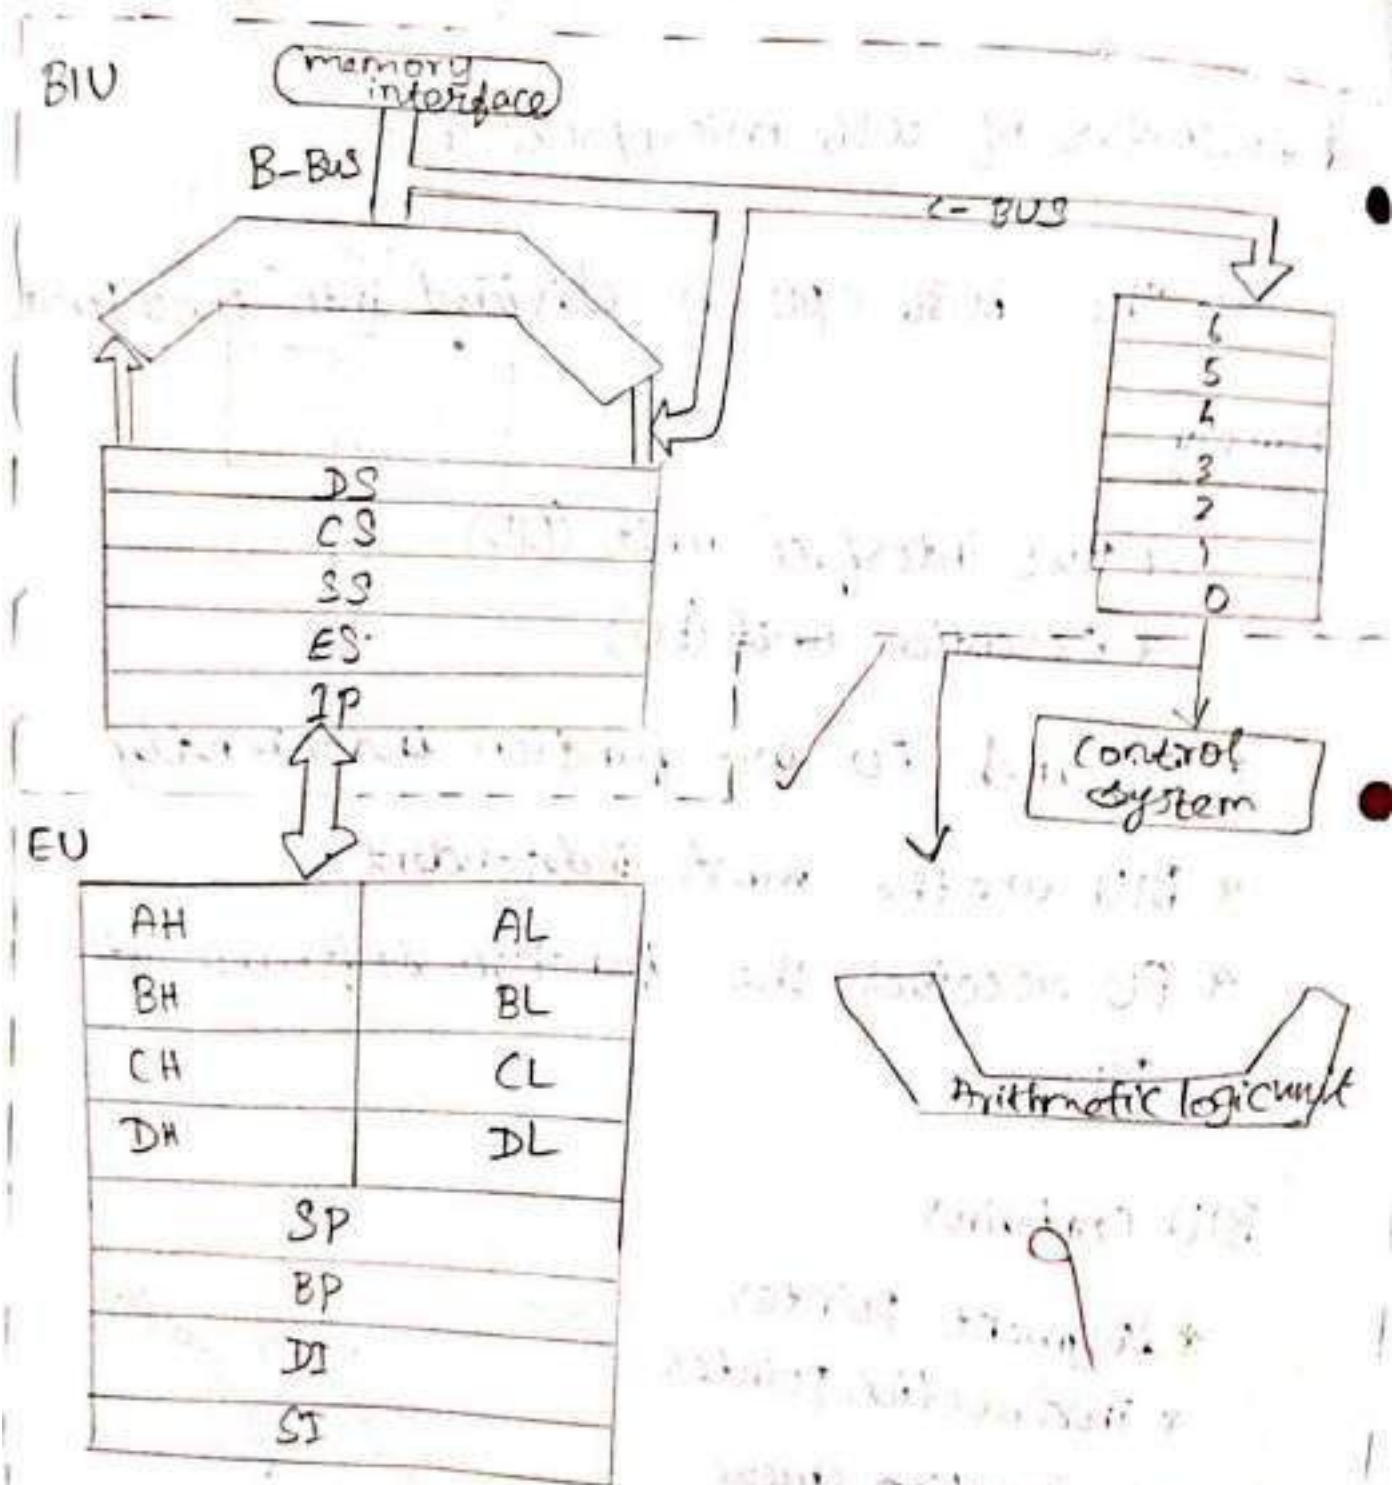 BIU
memory
interface
B-BUS
C-BUS
6
5
4
3
2
1
0
DS
CS
SS
ES
IP
Control
System
EU
AH AL
BH BL
CH CL
DH DL
SP
BP
DI
SI
Arithmetic logic unit